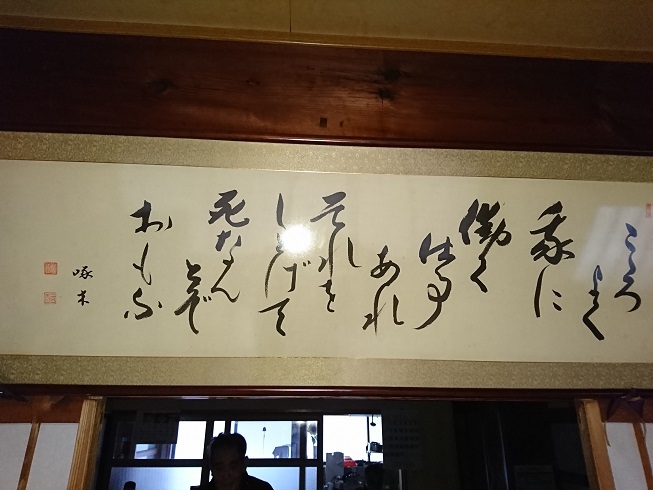 こゝろ
よく
我に
働く
仕事
あれ
それを
しとげて
死なん
とぞ
おもふ
啄木